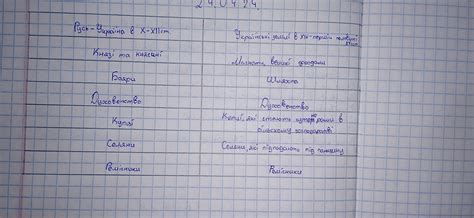 24.04.24.
Русь-Україна в X-XIIIст.
Українські землі в XIV- першій половині
Князі та княгині
Магнати, великі феодали
Бояри
Шляхта
Духовенство
Духовенство
Купці
Купці, які стають в
сільському господарстві
Селяни
Селяни, які підпадають під панщину
Ремісники
Ремісники